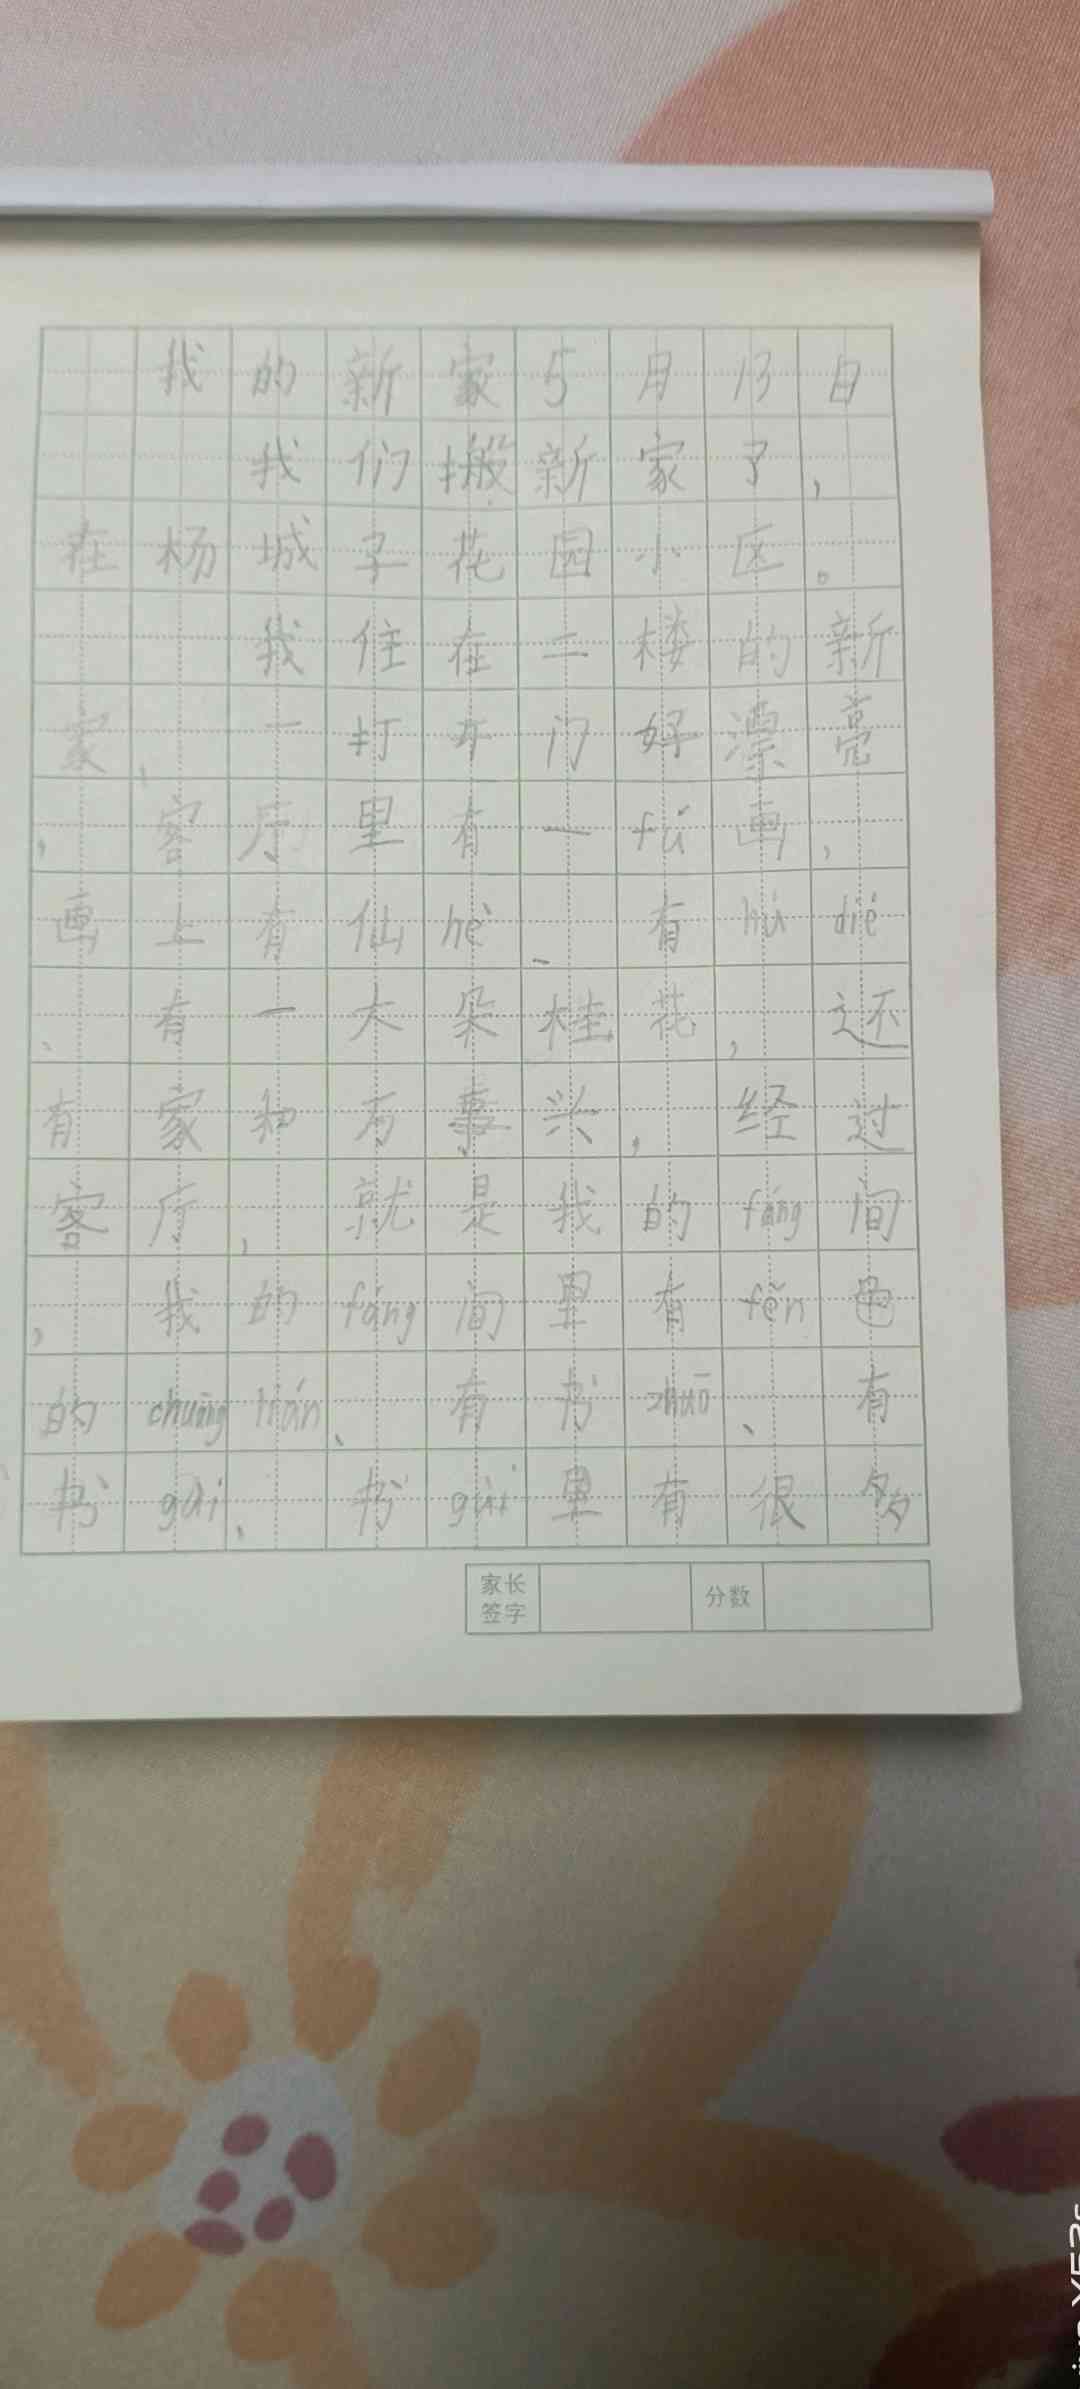 我的新家5月13日
我们搬新家了，
在杨城子花园小区。
我住在二楼的新
家，一打开门好漂亮
，客厅里有一fú画，
画上有仙hè、有hú dié
、有一大朵桂花，还
有家和万事兴，经过
客厅，就是我的fáng间
，我的fáng间里有fěn色
的chuáng lián、有书zhuō、有
书guì，书guì里有很多
家长签字
分数